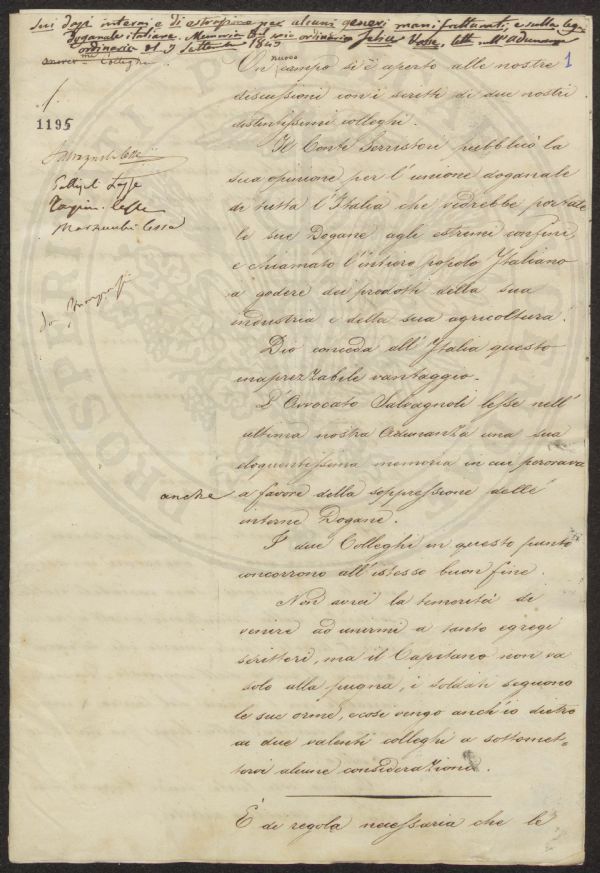 Sui dazi interni e di estrazione per alcuni generi manifatturati, e sulla lega
Doganale italiana. Memoria del socio ordinario Felice Vasse, letta nell'adunanza
ordinaria del 5 Settembre 1847
Colleghi
1
1195
Un nuovo campo si è aperto alle nostre
discussioni con i scritti di due nostri
distintissimi colleghi.
Il Conte Serristori pubblicò la
sua opinione per l'unione doganale
di tutta l'Italia che vedrebbe portate
le sue Dogane agli estremi confini,
e chiamato l'intiero popolo Italiano
a godere dei prodotti della sua
industria e della sua agricoltura.
Dio conceda all'Italia questo
inaprezzabile vantaggio.
L'Avvocato Salvagnoli lesse nell'
ultima nostra Adunanza una sua
eloquentissima memoria in cui perorava
anche a favore della soppressione delle
interne Dogane.
I due Colleghi in questo punto
concorrono all'istesso buon fine.
Non avrei la temerità di
venire ad unirmi a tanto egregi
scrittori, ma il Capitano non va
solo alla pugna, i soldati seguono
le sue orme, e così vengo anch'io dietro
ai due valenti colleghi a sottomet-
tervi alcune considerazioni.
È di regola necessaria che le